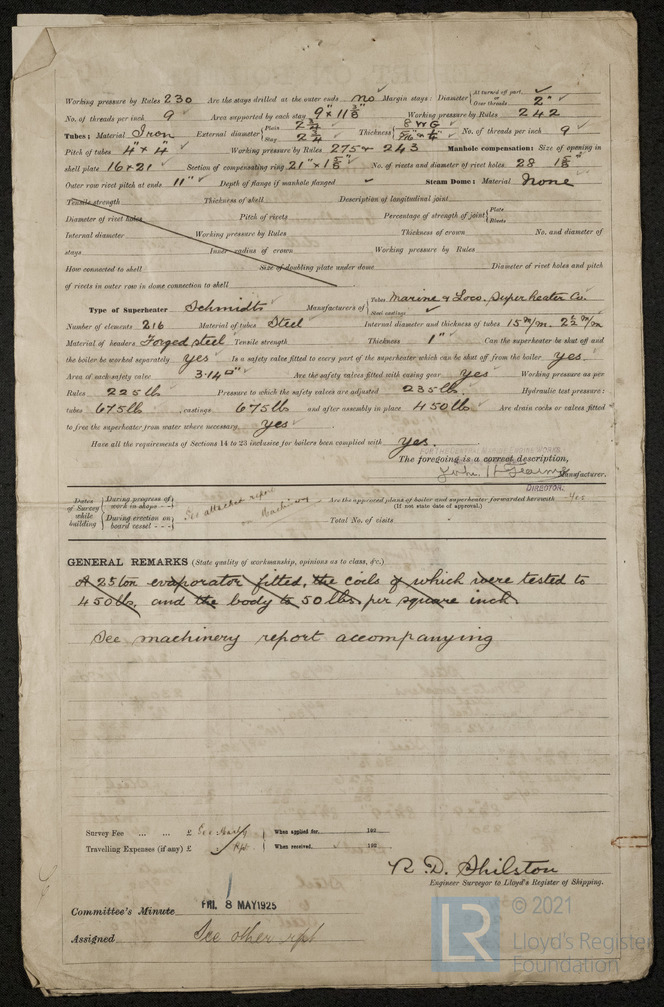 Working pressure by Rules 230 Are the stays drilled at the outer ends no Margin stays: Diameter { At turned off part, or Over threads 2"
No. of threads per inch 9 Area supported by each stay 9" × 11 3/8" Working pressure by Rules 242
Tubes: Material Iron External diameter { Plain 2 3/4 Stay 2 3/4 Thickness { 8 WG 5/16" & 1/4" No. of threads per inch 9
Pitch of tubes 4" × 4" Working pressure by Rules 275 & 243 Manhole compensation: Size of opening in
shell plate 16 × 21 Section of compensating ring 21" × 1 5/8" No. of rivets and diameter of rivet holes 28 1 5/8"
Outer row rivet pitch at ends 11" Depth of flange if manhole flanged Steam Dome: Material None
Tensile strength Thickness of shell Description of longitudinal joint
Diameter of rivet holes Pitch of rivets Percentage of strength of joint { Plate Rivets
Internal diameter Working pressure by Rules Thickness of crown No. and diameter of
stays Inner radius of crown Working pressure by Rules
How connected to shell Size of doubling plate under dome Diameter of rivet holes and pitch
of rivets in outer row in dome connection to shell
Type of Superheater Schmidts Manufacturers of { Tubes Marine & Loco. Superheater Co. Steel castings
Number of elements 216 Material of tubes Steel Internal diameter and thickness of tubes 15 m/m. 2 1/2 m/m
Material of headers Forged steel Tensile strength Thickness 1" Can the superheater be shut off and
the boiler be worked separately yes Is a safety valve fitted to every part of the superheater which can be shut off from the boiler yes.
Area of each safety valve 3.14 □" Are the safety valves fitted with easing gear yes Working pressure as per
Rules 225 lb Pressure to which the safety valves are adjusted 235 lb. Hydraulic test pressure:
tubes 675 lb castings 675 lb and after assembly in place 450 lb Are drain cocks or valves fitted
to free the superheater from water where necessary yes
Have all the requirements of Sections 14 to 23 inclusive for boilers been complied with yes.
FOR THE CENTRAL MARINE ENGINE WORKS
The foregoing is a correct description,
Manufacturer.
DIRECTOR.
Dates of Survey while building { During progress of work in shops - - During erection on board vessel - - - See attached report on Machinery Are the approved plans of boiler and superheater forwarded herewith Yes
(If not state date of approval.)
Total No. of visits
GENERAL REMARKS (State quality of workmanship, opinions as to class, &c.)
A 25 ton evaporator fitted, the coils of which were tested to
450 lbs, and the body to 50 lbs. per square inch.
See machinery report accompanying
Survey Fee ... ... £ When applied for, 192
Travelling Expenses (if any) £ When received, 192
R. D. Shilston
Engineer Surveyor to Lloyd's Register of Shipping.
Committee's Minute FRI. 8 MAY 1925
Assigned See other rpt
© 2021
LR Lloyd's Register
Foundation